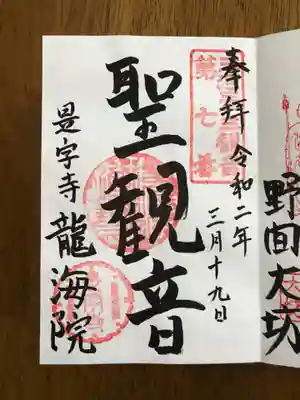 奉拝 令和二年
三月十九日
第七番
聖観音
是字寺 龍海院
野間大坊